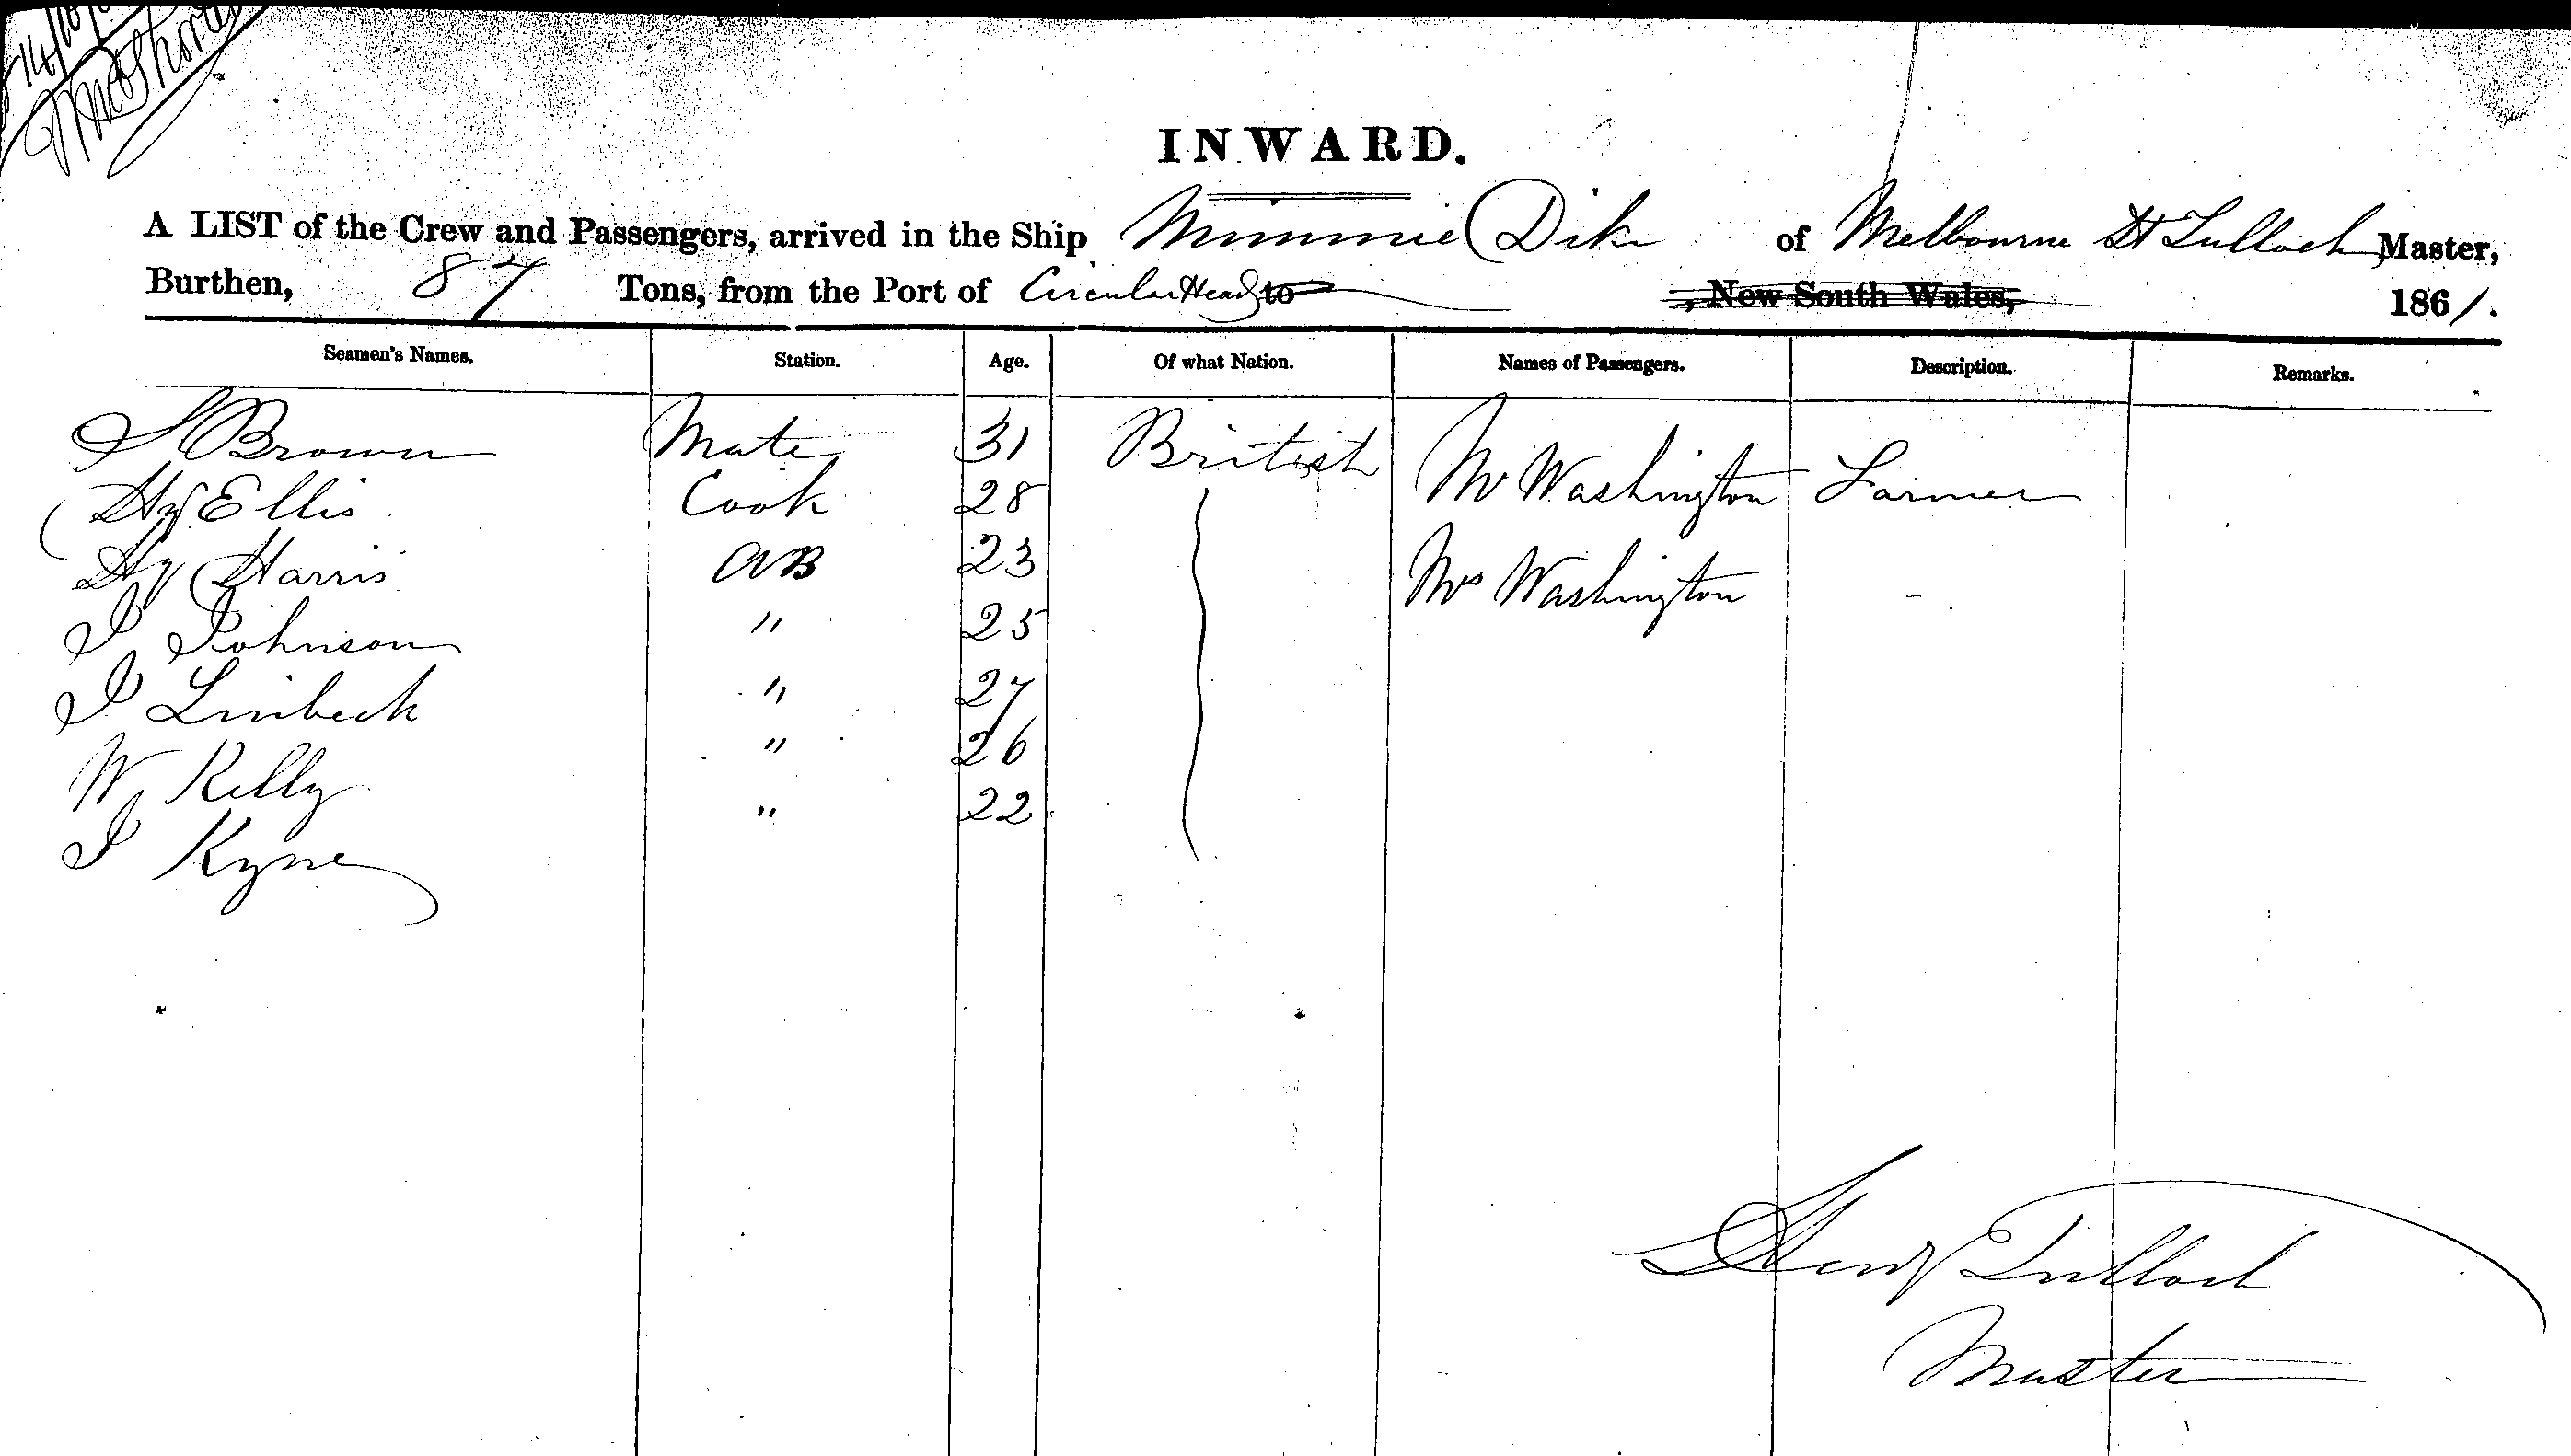 14/10/
INWARD.
A LIST of the Crew and Passengers, arrived in the Ship Minnie Dike of Melbourne Hy Tulloch Master,
Burthen, 87 Tons, from the Port of Circular Head to , New South Wales, 1861.
Seamen's Names. Station. Age. Of what Nation. Names of Passengers. Description. Remarks.
S Brown Mate 31 British Mr Washington Farmer
Hy Ellis Cook 28
Hy Harris AB 23 Mrs Washington
J Johnson " 25
J Linbeck " 27
W Kelly " 26
J Kyne " 22
Henry Tulloch
Master